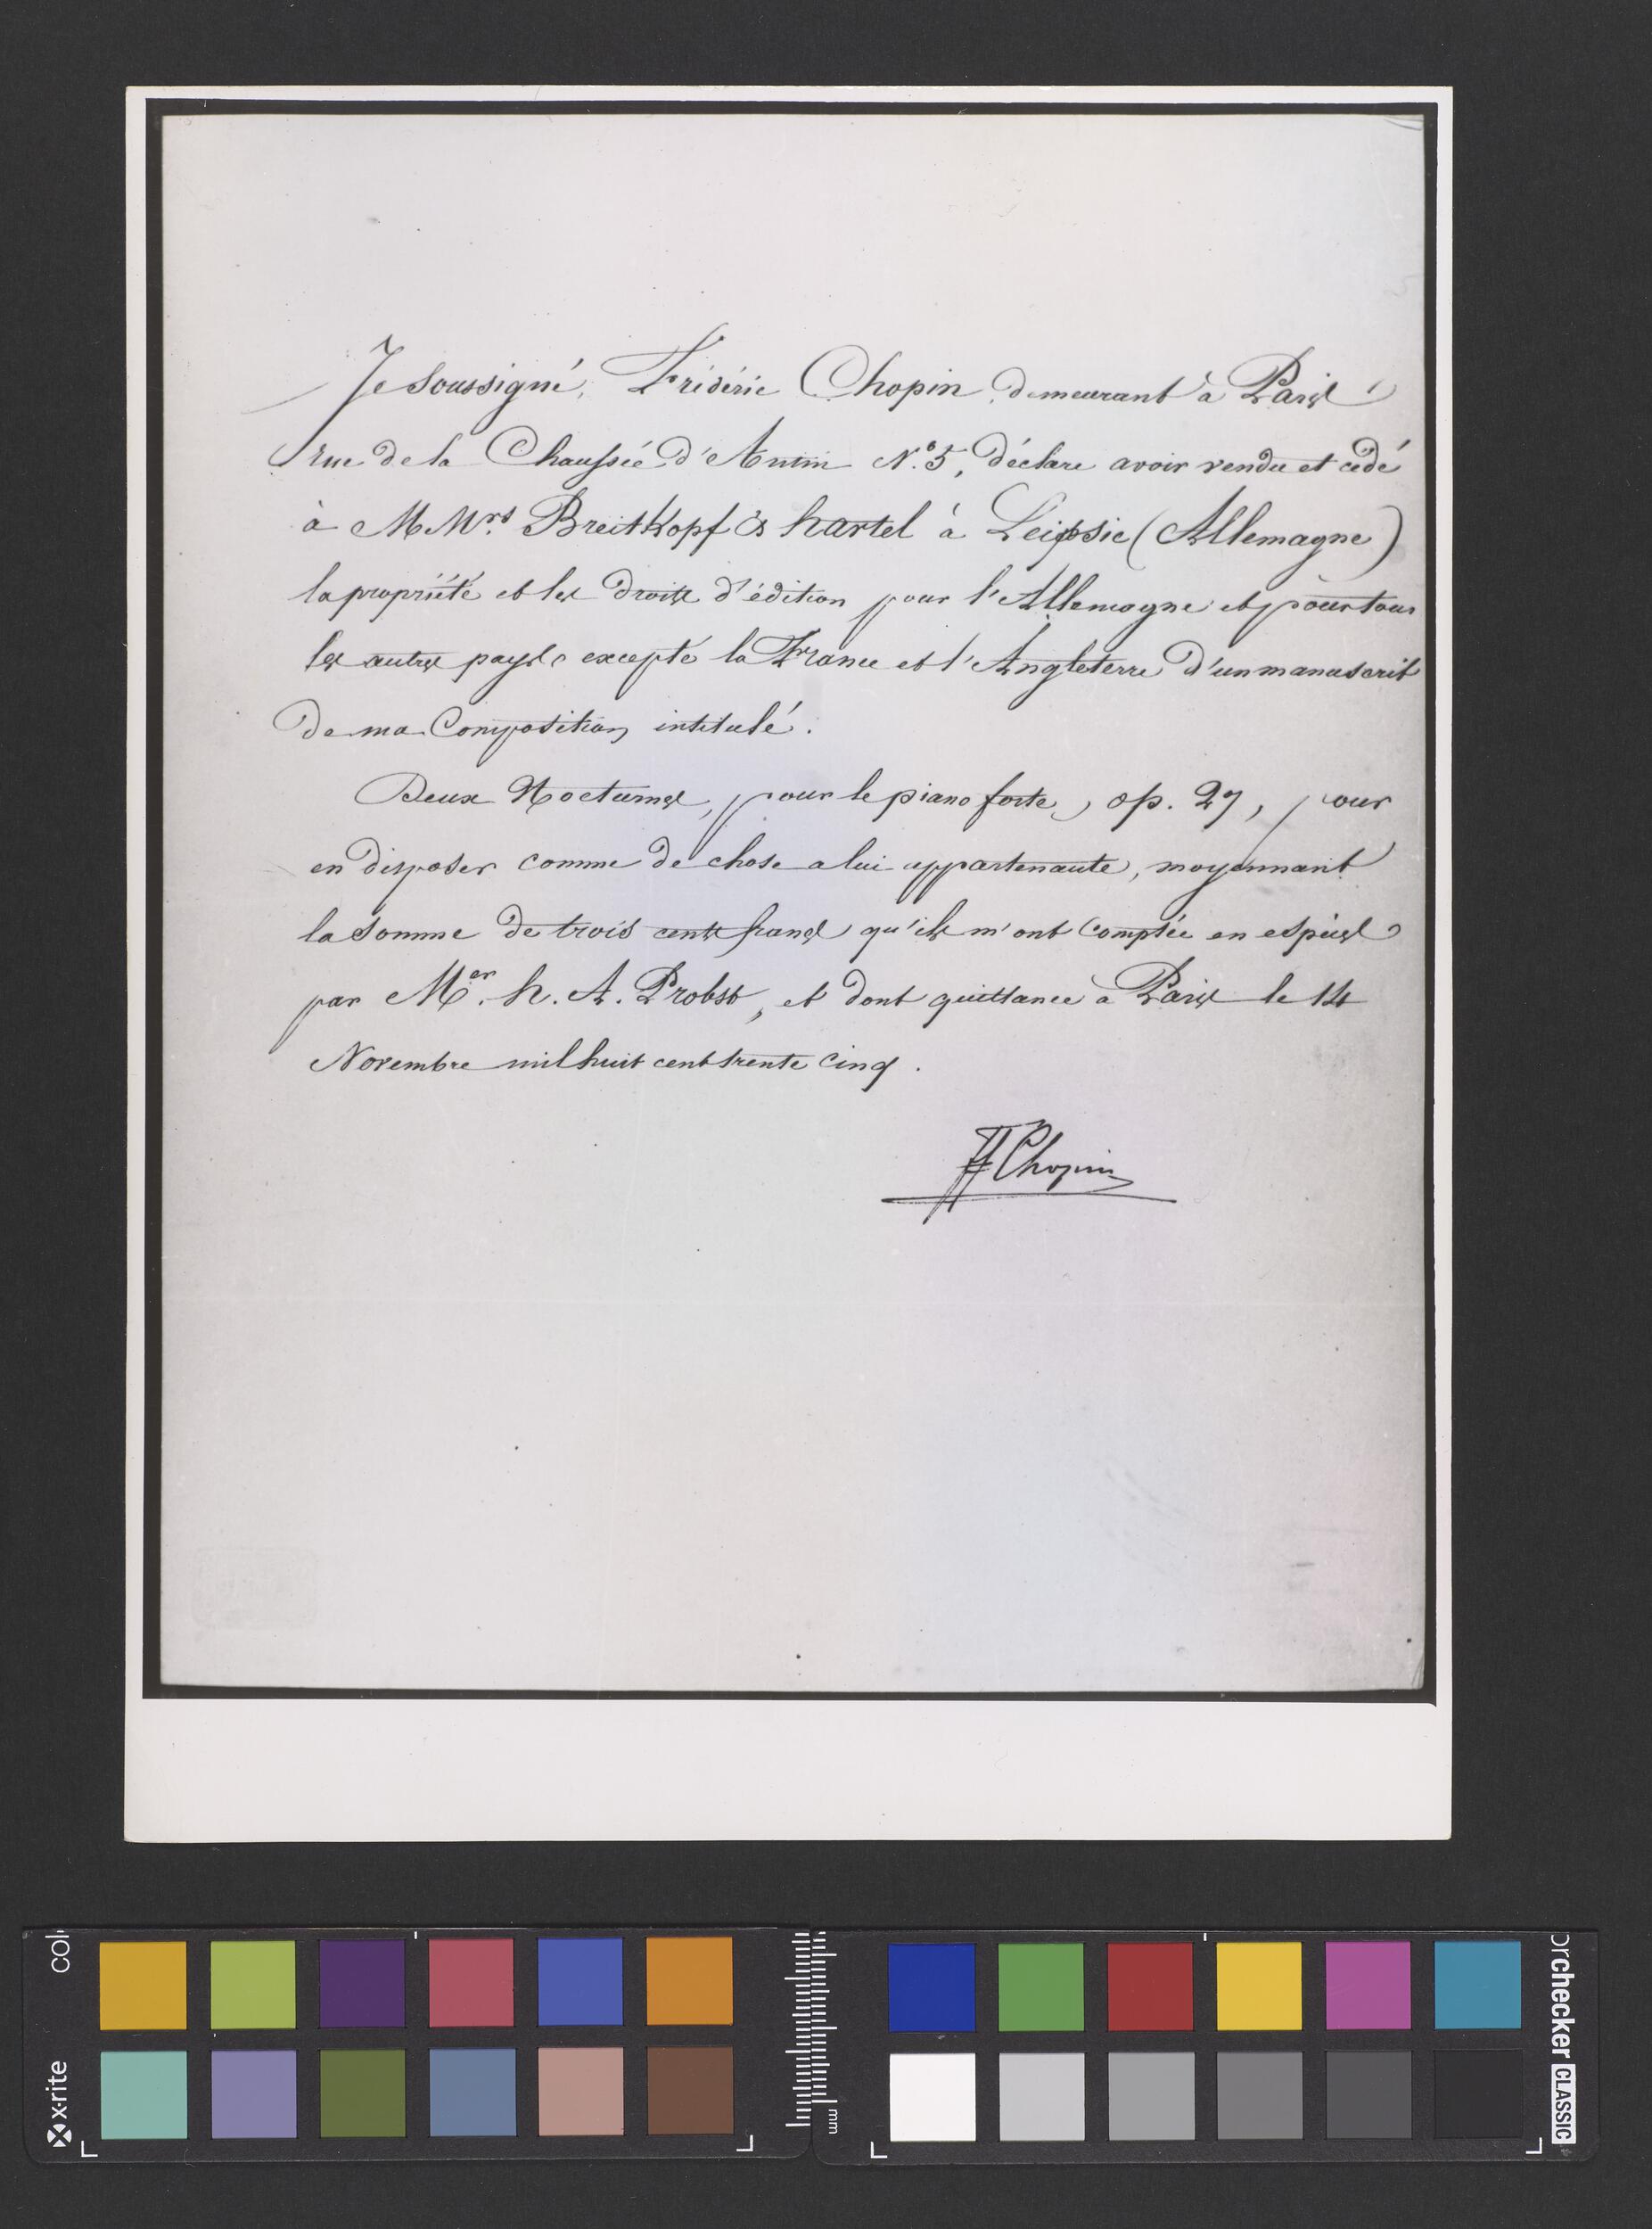 Je soussigné, Frédéric Chopin demeurant à Paris
rue de la Chaussée d'Antin N.° 5, déclare avoir vendu et cédé
à M Mrs. Breitkopf & hartel à Leipsic (Allemagne)
la propriété et les droits d'édition pour l'Allemagne et pour tous
les autres pays excepté la France et l'Angleterre d'un manuscrit
de ma Composition intitulé.
Deux Nocturnes, pour le piano forte, op. 27, pour
en disposer comme de chose a lui appartenante, moyennant
la somme de trois cents francs qu'ils m'ont comptée en espèces
par Mer. h. A. Probst, et dont quittance a Paris le 14
Novembre mil huit cent trente cinq.
FF Chopin
col
x·rite
mm
orchecker CLASSIC